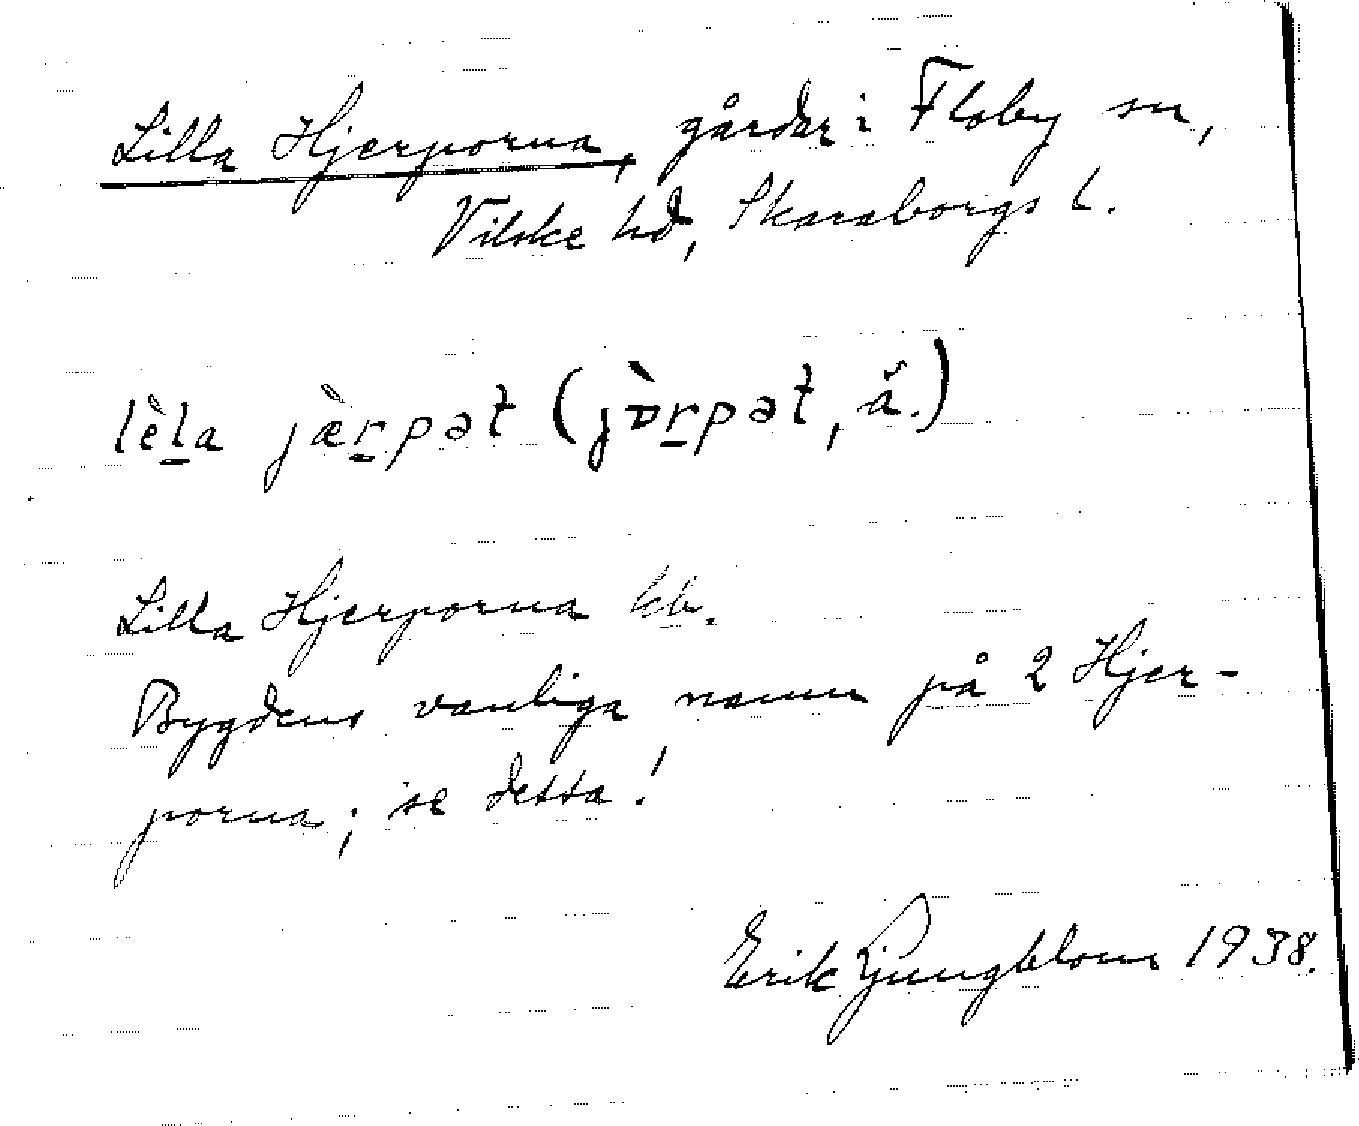 Lilla Hjerporna, gårdar i Floby sn,
Vilske hd, Skaraborgs l.
lèl̲a jæ̀r̲pət (jɒ̀r̲pət, ä.)
Lilla Hjerporna kb.
Bygdens vanliga namn på 2 Hjer-
porna; se detta!
Erik Ljungblom 1938.